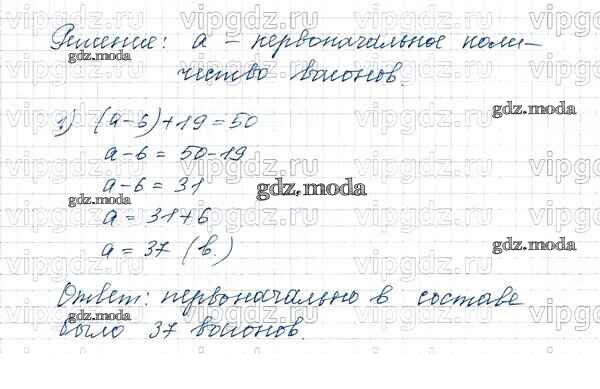 Решение: a – первоначальное коли-
чество вагонов.
1) (a-6)+19=50
a-6=50-19
a-6=31
a=31+6
a=37 (в.)
Ответ: первоначально в составе
было 37 вагонов.
vipgdz.ru
gdz.moda